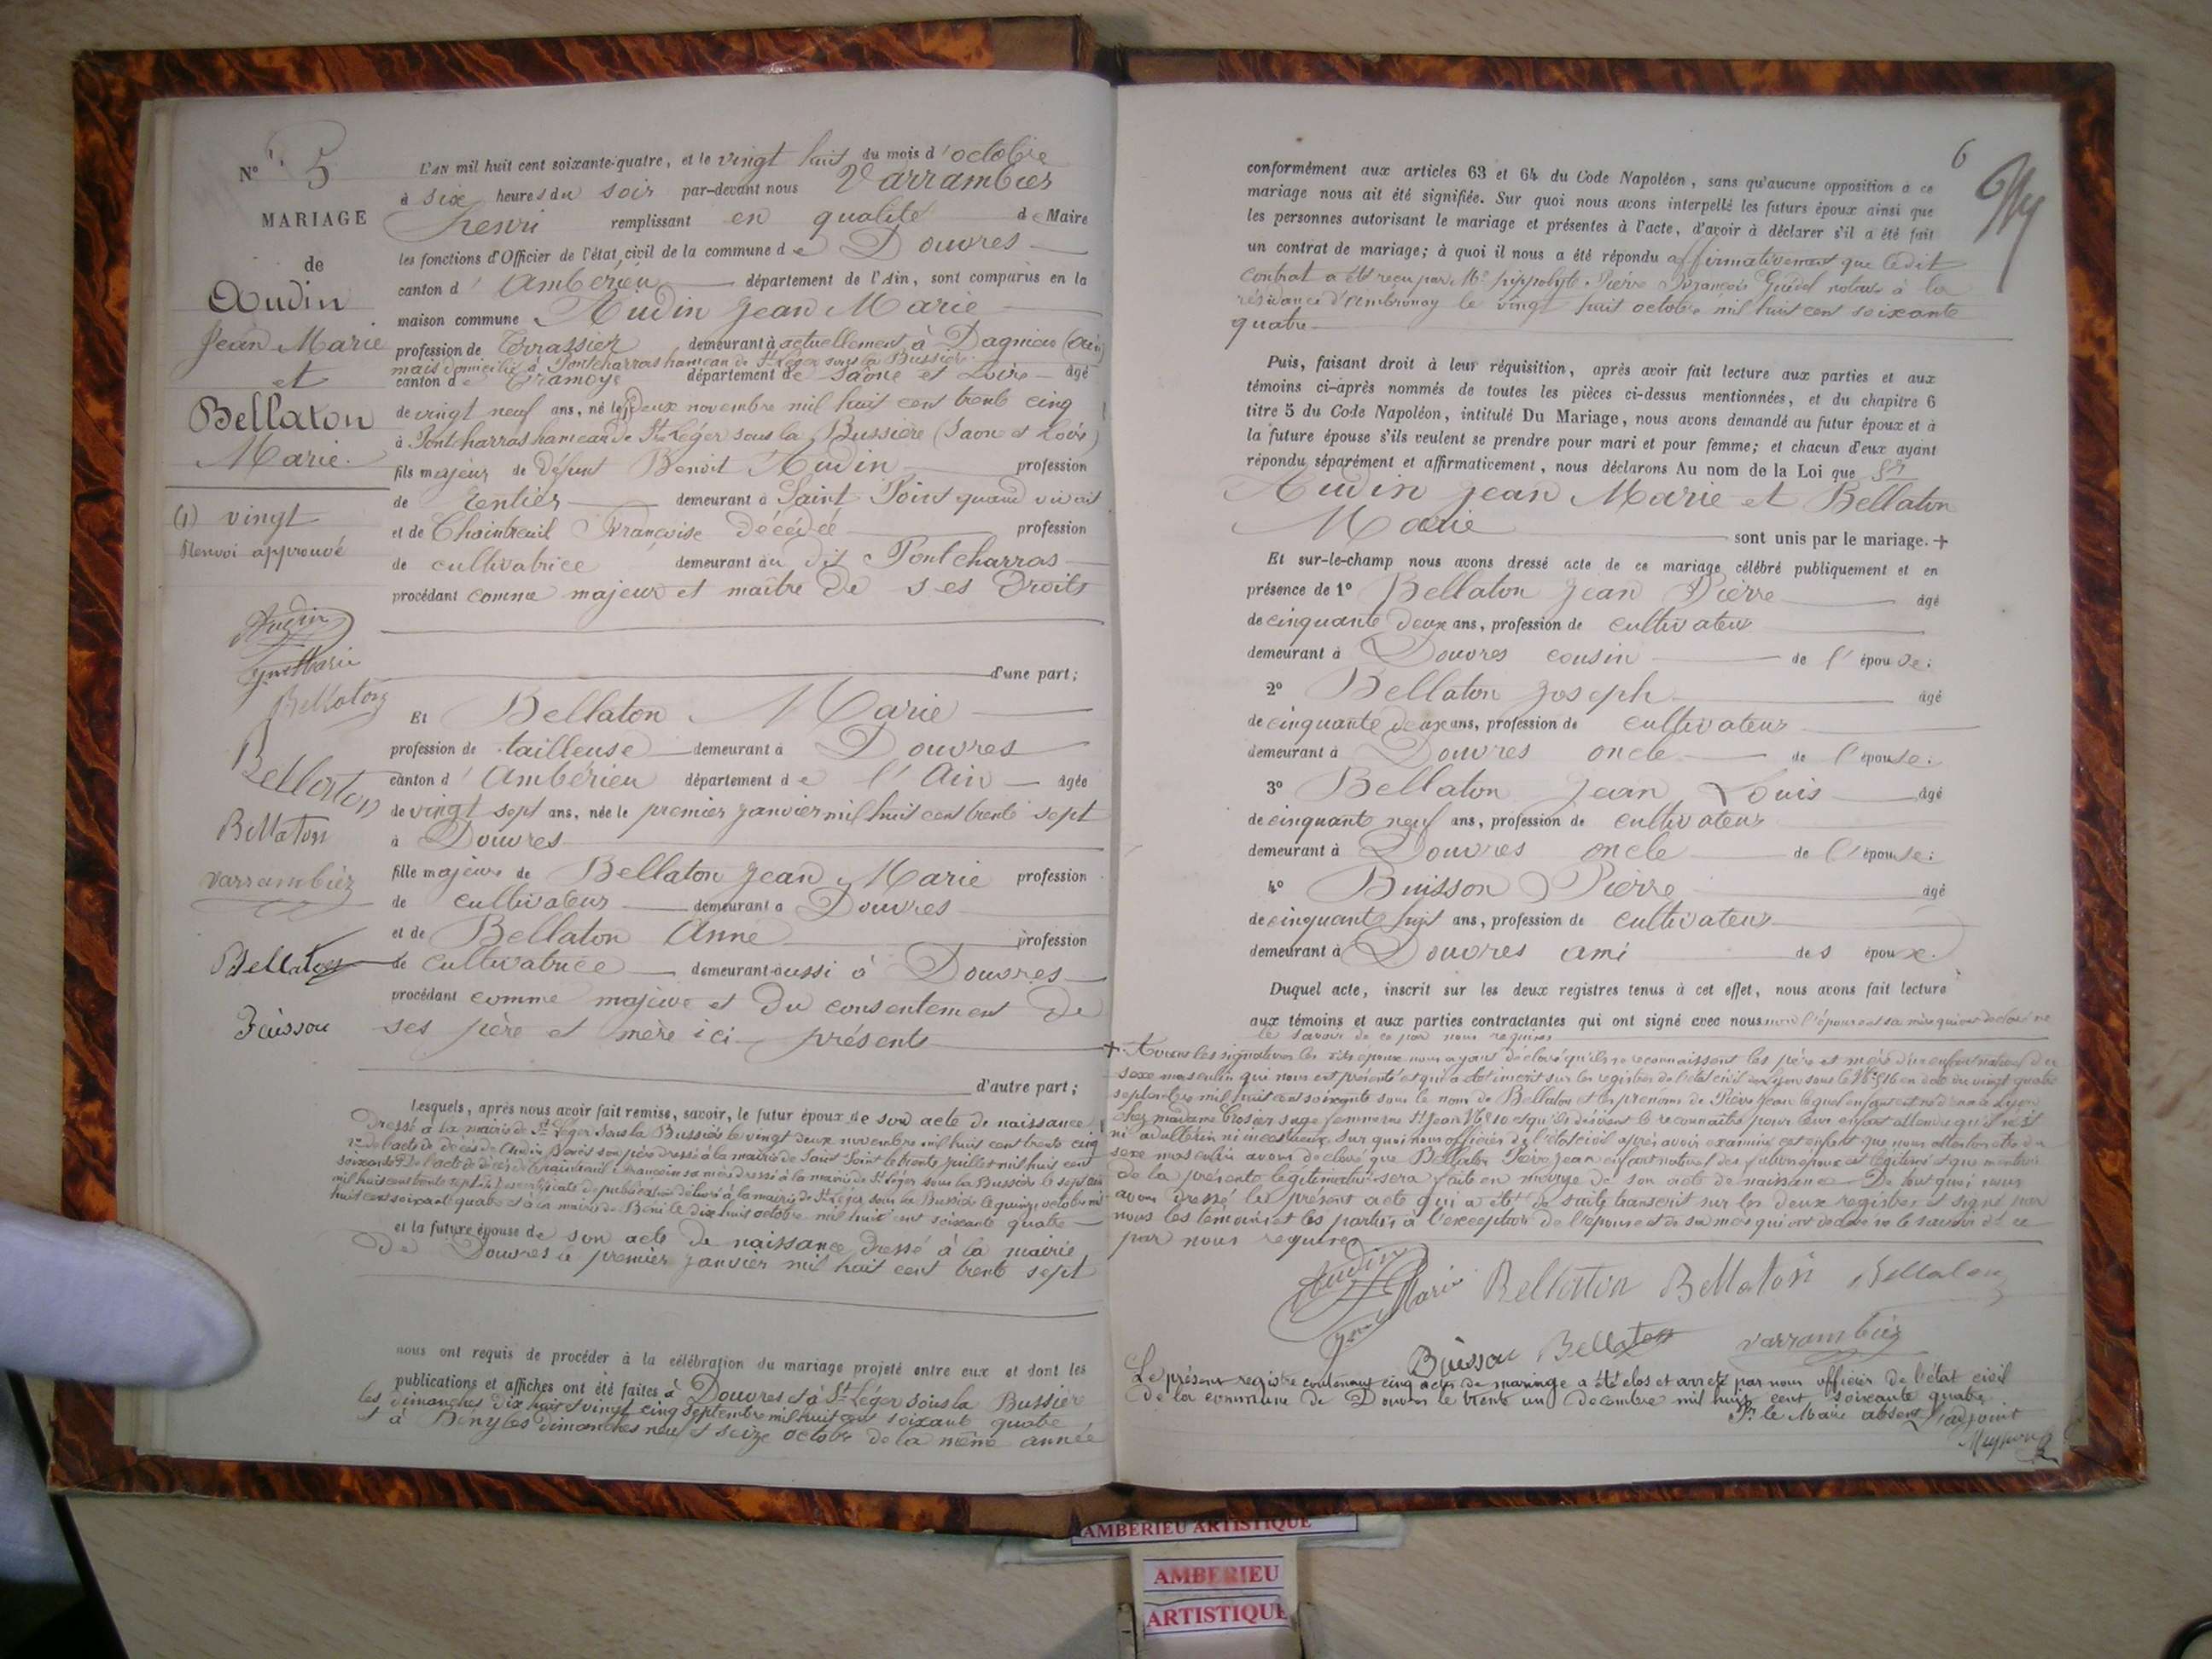 N° 5
MARIAGE
de
Audin
Jean Marie
et
Bellaton
Marie.
(1) vingt
Renvoi approuvé
Audin
Jean Marie
Bellaton
Bellaton
Bellaton
Varrambier
Bellaton
Buisson
L'AN mil huit cent soixante-quatre, et le vingt huit du mois d'octobre
à six heures du soir par-devant nous Varrambier
Henri remplissant en qualité de Maire
les fonctions d'Officier de l'état civil de la commune de Douvres
canton d'Ambérieu département de l'Ain, sont comparus en la
maison commune Audin Jean Marie
profession de Terrassier demeurant à actuellement à Dagnieu (Ain)
mais domicilié à Pontcharras hameau de St Léger sous la Bussière
canton de Tramoye département de Saône et Loire âgé
de vingt neuf ans, né le (1) deux novembre mil huit cent trente cinq
à Pontcharras hameau de St Léger sous la Bussière (Saone et Loire)
fils majeur de défunt Benoit Audin profession
de rentier demeurant à Saint Point quand vivait
et de Chaintreuil Françoise décédée profession
de cultivatrice demeurant au dit Pontcharras
procédant comme majeur et maître de ses droits
d'une part;
Et Bellaton Marie
profession de tailleuse demeurant à Douvres
canton d'Ambérieu département de l'Ain âgée
de vingt sept ans, née le premier janvier mil huit cent trente sept
à Douvres
fille majeure de Bellaton Jean Marie profession
de cultivateur demeurant à Douvres
et de Bellaton Anne profession
de cultivatrice demeurant aussi à Douvres
procédant comme majeure et du consentement de
ses père et mère ici présents
d'autre part;
Lesquels, après nous avoir fait remise, savoir, le futur époux de son acte de naissance
dressé à la mairie de St Léger sous la Bussière le vingt deux novembre mil huit cent trente cinq
de l'acte de décès de Audin Benoit son père dressé à la mairie de Saint Point le trente juillet mil huit cent
soixante de l'acte de décès de Chaintreuil Françoise sa mère dressé à la mairie de St Léger sous la Bussière le sept
mil huit cent trente sept certificats de publication délivré à la mairie de St Léger sous la Bussière le quinze octobre mil
huit cent soixante quatre et à la mairie de Béni le dix huit octobre mil huit cent soixante quatre
et la future épouse de son acte de naissance dressé à la mairie
de Douvres le premier janvier mil huit cent trente sept
nous ont requis de procéder à la célébration du mariage projeté entre eux et dont les
publications et affiches ont été faites à Douvres et à St Léger sous la Bussière
les dimanches dix huit et vingt cinq septembre mil huit cent soixante quatre
et à Bény les dimanches neuf et seize octobre de la même année
6
conformément aux articles 63 et 64 du Code Napoléon, sans qu'aucune opposition à ce
mariage nous ait été signifiée. Sur quoi nous avons interpellé les futurs époux ainsi que
les personnes autorisant le mariage et présentes à l'acte, d'avoir à déclarer s'il a été fait
un contrat de mariage; à quoi il nous a été répondu affirmativement que ledit
contrat a été reçu par Me hippolyte Pierre François Guédel notaire à la
résidance d'Ambronay le vingt huit octobre mil huit cent soixante
quatre
Puis, faisant droit à leur réquisition, après avoir fait lecture aux parties et aux
témoins ci-après nommés de toutes les pièces ci-dessus mentionnées, et du chapitre 6
titre 5 du Code Napoléon, intitulé Du Mariage, nous avons demandé au futur époux et à
la future épouse s'ils veulent se prendre pour mari et pour femme; et chacun d'eux ayant
répondu séparément et affirmativement, nous déclarons Au nom de la Loi que
Audin Jean Marie et Bellaton
Marie sont unis par le mariage. +
Et sur-le-champ nous avons dressé acte de ce mariage célébré publiquement et en
présence de 1° Bellaton Jean Pierre âgé
de cinquante deux ans, profession de cultivateur
demeurant à Douvres cousin de l'épouse;
2° Bellaton Joseph âgé
de cinquante deux ans, profession de cultivateur
demeurant à Douvres oncle de l'épouse;
3° Bellaton Jean Louis âgé
de cinquante neuf ans, profession de cultivateur
demeurant à Douvres oncle de l'épouse;
4° Buisson Pierre âgé
de cinquante huit ans, profession de cultivateur
demeurant à Douvres ami des époux.
Duquel acte, inscrit sur les deux registres tenus à cet effet, nous avons fait lecture
aux témoins et aux parties contractantes qui ont signé avec nous non l'épouse et sa mère qui ont déclaré ne
le savoir de ce par nous requises
+ Avant les signatures les dits époux nous ayant déclaré qu'ils se reconnaissent les père et mère d'un enfant naturel du
sexe masculin qui nous est présenté et qui a été inscrit sur les registres de l'état civil de Lyon sous le N° 516 en date du vingt quatre
septembre mil huit cent soixante sous le nom de Bellaton et les prénoms de Pierre Jean lequel enfant est né à Lyon
chez madame Crosier sage femme rue St Jean N° 10 et qu'ils désirent le reconnaître pour leur enfant attendu qu'il n'est
ni adultérin ni incestueux, sur quoi nous officier de l'état civil après avoir examiné cet enfant que nous attestons être du
sexe masculin avons déclaré que Bellaton Pierre Jean enfant naturel des futurs époux est légitimé et que mention
de la présente légitimation sera faite en marge de son acte de naissance De tout quoi nous
avons dressé le présent acte qui a été de suite transcrit sur les deux registres et signé par
nous les témoins et les parties à l'exception de l'épouse et de sa mère qui ont déclaré ne le savoir de ce
par nous requises
Audin
Jean Marie Bellaton Bellaton Bellaton
Buisson Bellaton Varrambier
Le présent registre contenant cinq actes de mariage a été clos et arrêté par nous officier de l'état civil
de la commune de Douvres le trente un décembre mil huit cent soixante quatre
Pr le Maire absent L'adjoint
AMBERIEU ARTISTIQUE
AMBERIEU
ARTISTIQUE